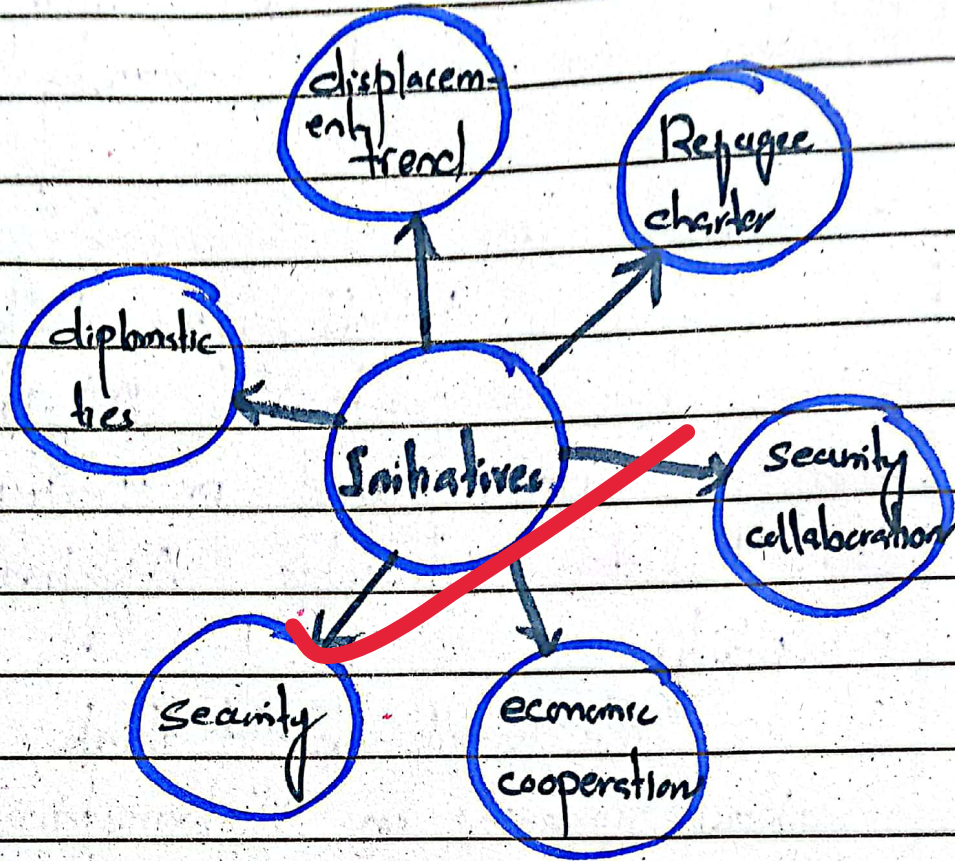 displacem-
ent
trend
Refugee
charter
diplomatic
ties
Initiatives
security
collaboration
security
economic
cooperation